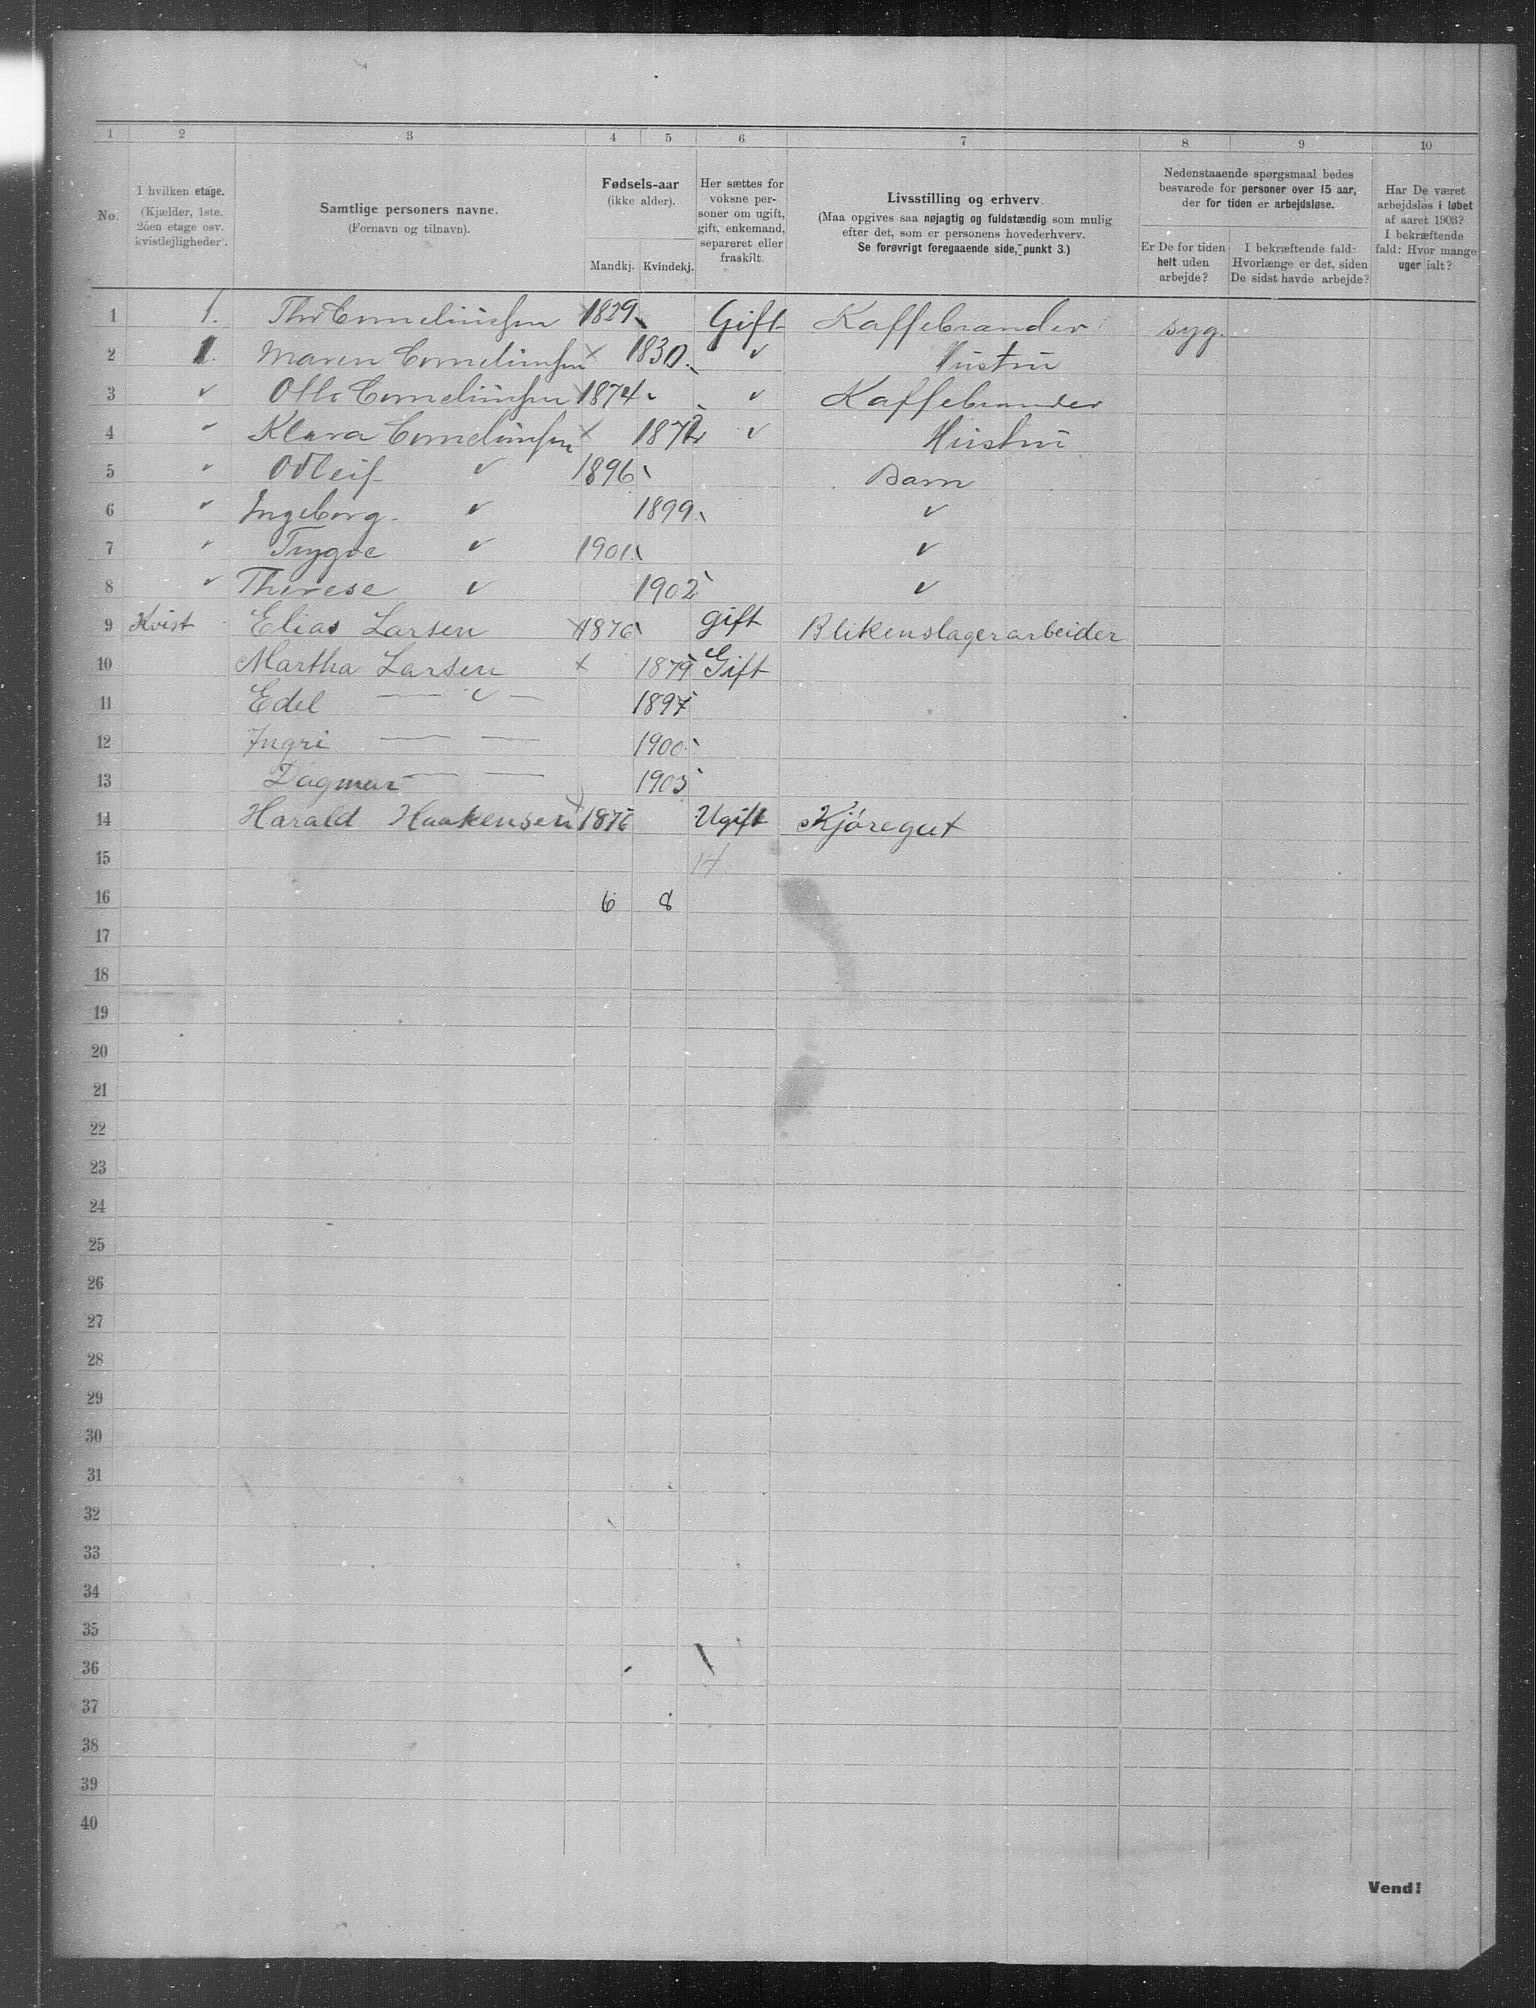 1 2 3 4 5 6 7 8 9 10
No.
I hvilken etage.
(Kjælder, 1ste, 2den etage osv. kvistlejligheder).
Samtlige personers navne.
(Fornavn og tilnavn).
Fødsels-aar
(ikke alder).
Mandkj. Kvindekj.
Her sættes for voksne personer om ugift, gift, enkemand, separeret eller fraskilt.
Livsstilling og erhverv.
(Maa opgives saa nøjagtig og fuldstændig som mulig efter det, som er personens hovederhverv.
Se forøvrigt foregaaende side, punkt 3.)
Nedenstaaende spørgsmaal bedes besvarede for personer over 15 aar, der for tiden er arbejdsløse.
Er De for tiden helt uden arbejde?
I bekræftende fald: Hvorlænge er det, siden De sidst havde arbejde?
Har De været arbejdsløs i løbet af aaret 1903? I bekræftende fald: Hvor mange uger ialt?
1 1. Thv Corneliussen 1829 Gift Kaffebrænder syg.
2 1. Maren Corneliussen × 1830 ✓ Hustru
3 ✓ Otto Corneliussen 1874 ✓ Kaffebrænder
4 " Klara Corneliussen × 1872 ✓ Hustru
5 " Odleif ✓ 1896 Barn
6 " Ingeborg ✓ 1899 ✓
7 " Trygve ✓ 1901 ✓
8 " Therese ✓ 1902 ✓
9 Kvist Elias Larsen 1876 gift Blikenslagerarbeider
10 Martha Larsen × 1879 Gift
11 Edel — ✓ — 1897
12 Ingri — — 1900
13 Dagmar — — 1903
14 Harald Haakensen 1876 Ugift Kjøregut
15 14
16 6 8
17
18
19
20
21
22
23
24
25
26
27
28
29
30
31
32
33
34
35
36
37
38
39
40
Vend!